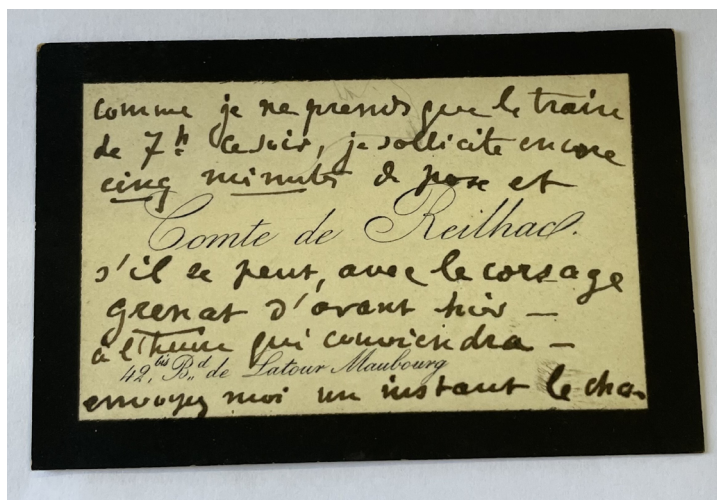 comme je ne prends que le train
de 7h ce soir, je sollicite encore
cinq minutes de pose et
Comte de Reilhac.
s'il se peut, avec le corsage
grenat d'avant hier —
à l'heure qui conviendra —
42, bis Bd. de Latour Maubourg
envoyez moi un instant le cha-